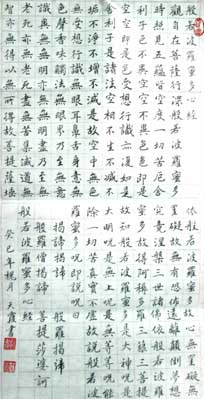 般若波羅蜜多心經
觀自在菩薩行深般若波羅蜜多
時照見五蘊皆空度一切苦厄舍
利子色不異空空不異色色即是
空空即是色受想行識亦復如是
舍利子是諸法空相不生不滅不
垢不淨不增不減是故空中無色
無受想行識無眼耳鼻舌身意無
色聲香味觸法無眼界乃至無意
識界無無明亦無無明盡乃至無
老死亦無老死盡無苦集滅道無
智亦無得以無所得故菩提薩埵
依般若波羅蜜多故心無罣礙無
罣礙故無有恐怖遠離顛倒夢想
究竟涅槃三世諸佛依般若波羅
蜜多故得阿耨多羅三藐三菩提
故知般若波羅蜜多是大神咒是
大明咒是無上咒是無等等咒能
除一切苦真實不虛故說般若波
羅蜜多咒即說咒曰
揭諦揭諦 般羅揭諦
般羅僧揭諦 菩提莎婆訶
般若波羅蜜多心經
癸巳年槐月 天霞書